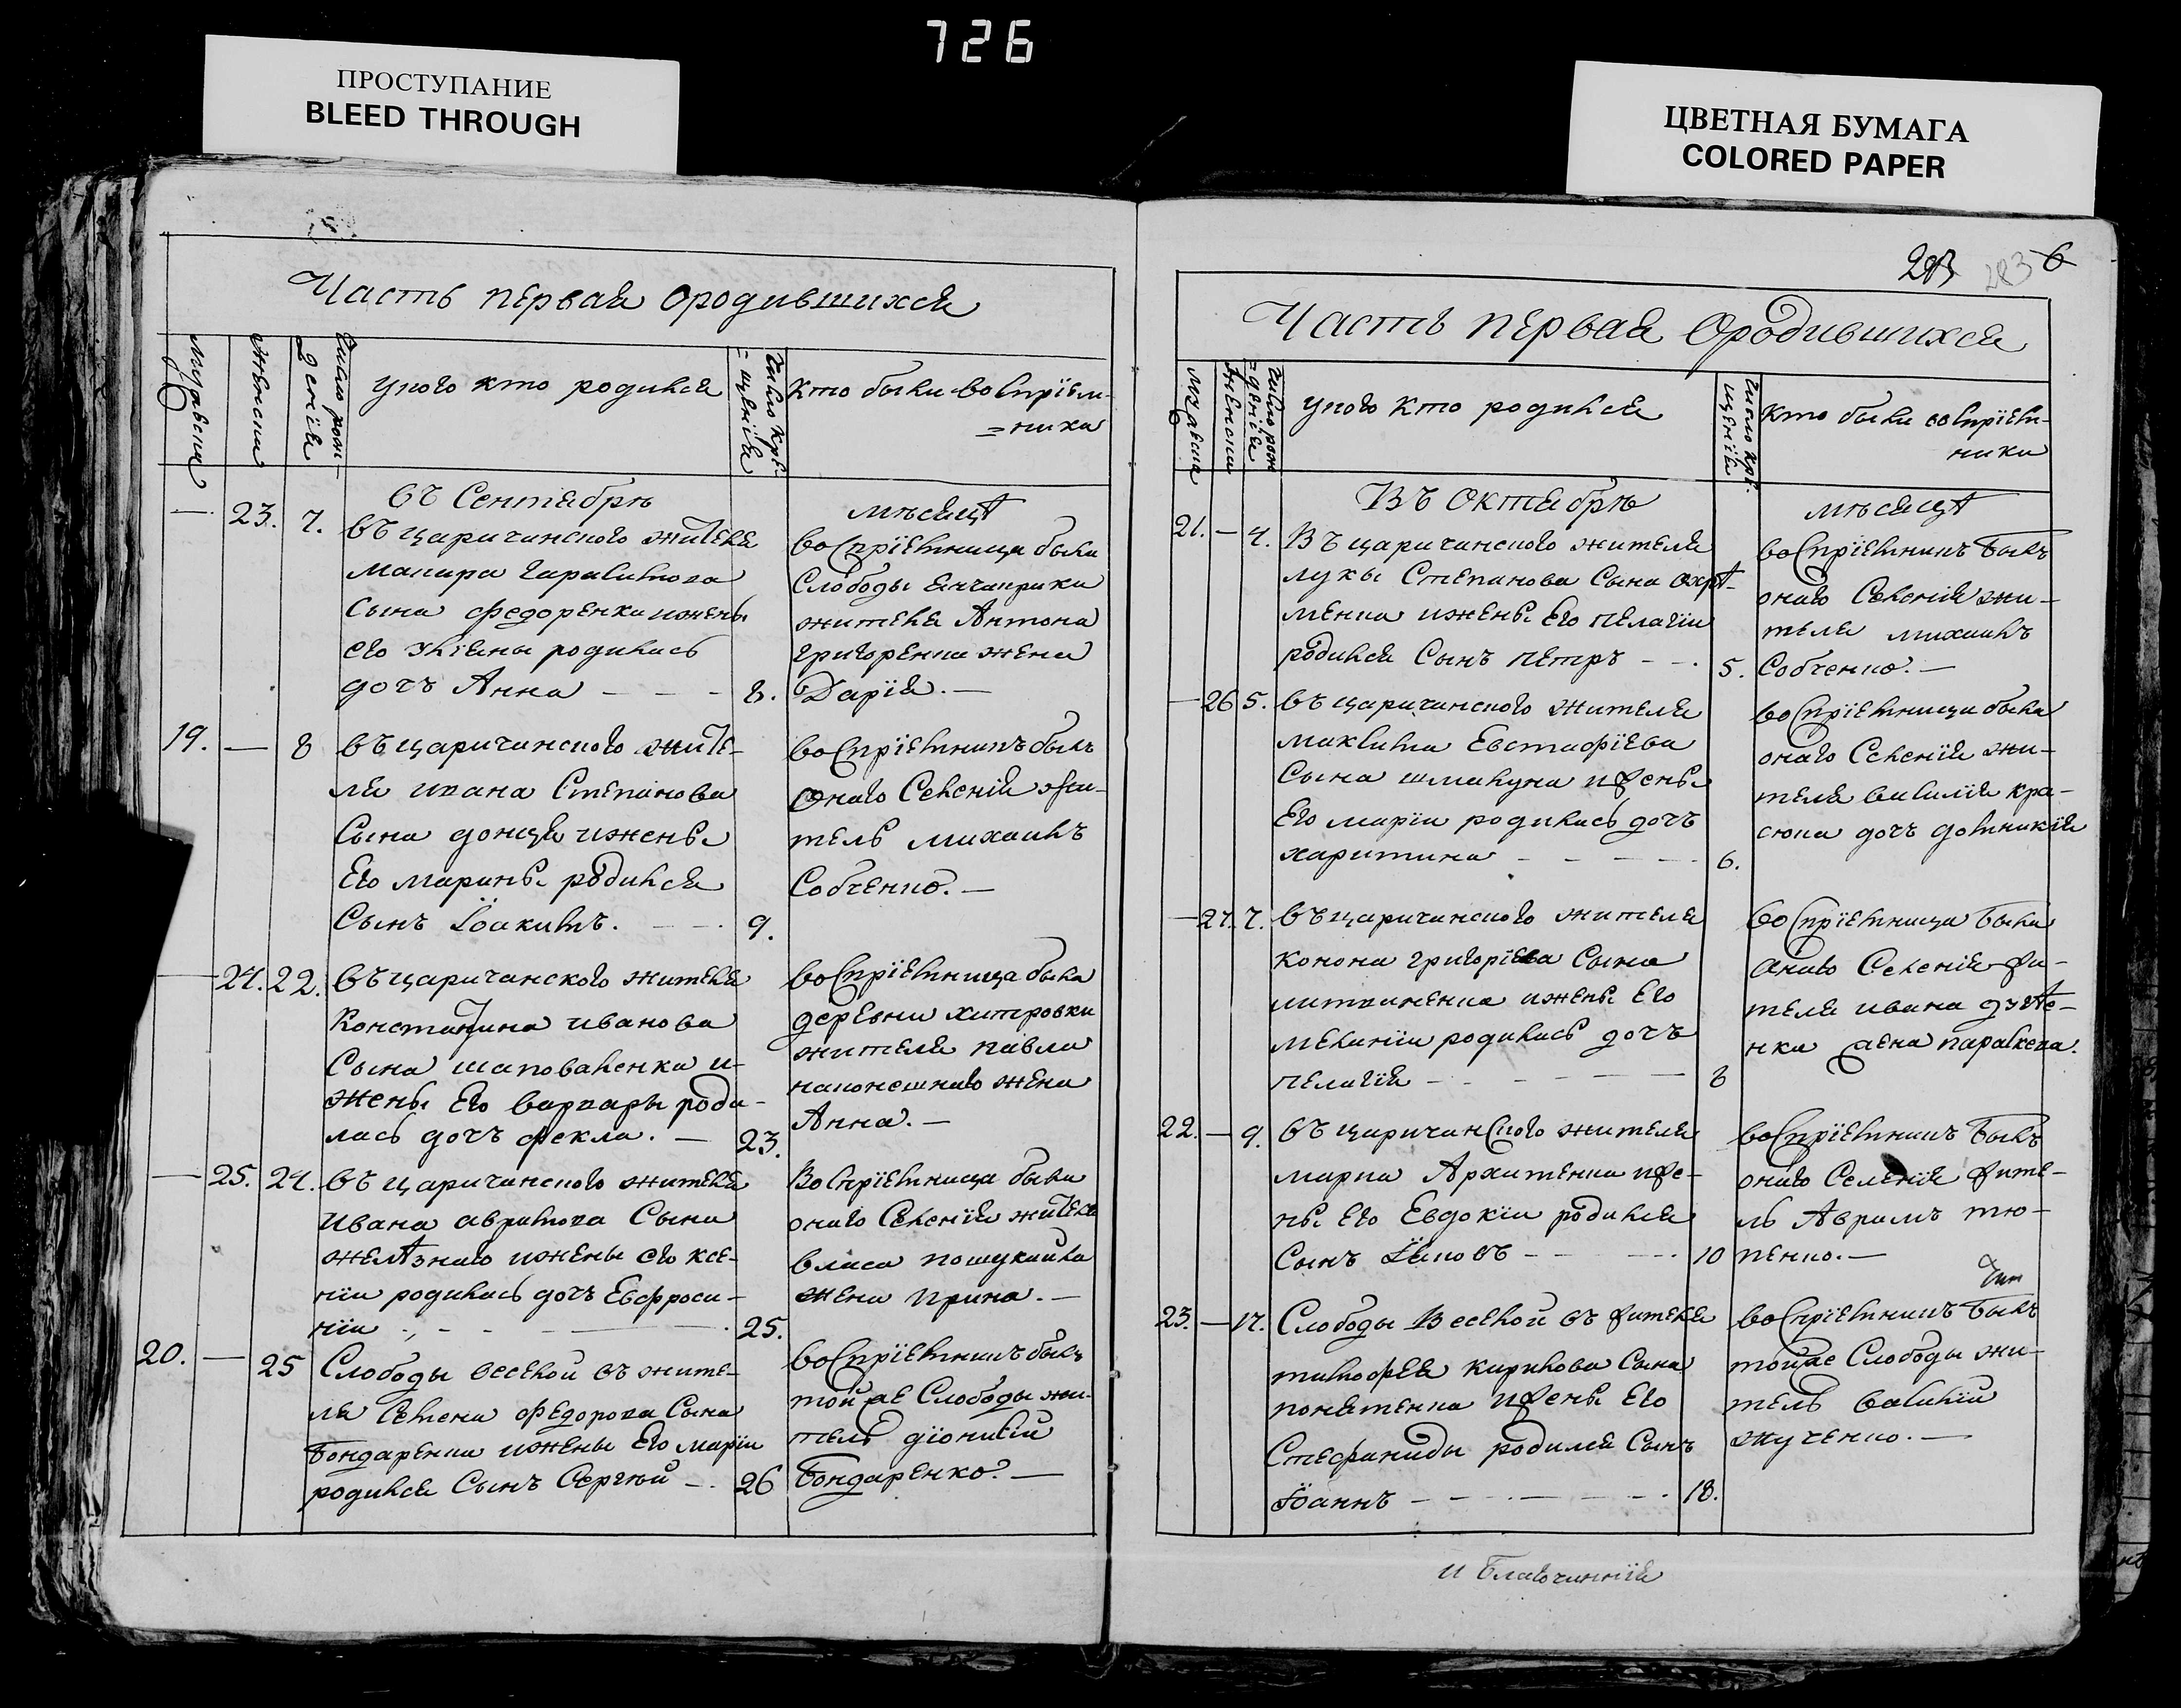 726
ПРОСТУПАНИЕ
BLEED THROUGH
ЦВЕТНАЯ БУМАГА
COLORED PAPER
Часть первая ородившихся
Мужеска
Женска
Число рож-
дения
Укого кто родился
Число кре-
=щенїя
Кто были воспрїем-
=ники
въ Сентябрѣ
мѣсяцѣ
— 23. 7.
въ царичанского жителя
Макара Гарасимова
Сына Федоренка ижены
его Улїяны родилась
дочъ Анна — — — 8.
воспрїемница была
Слободы
жителя Антона
григоренка жена
Дарїя. —
19. — 8
въ царичанского жите-
ля ивана Степанова
Сына донця ижены
Его марины родился
Сынъ Їоакимъ. — — 9.
воспрїемникъ былъ
Оного Селенїя жи-
тель михаилъ
Собченко. —
— 24. 22.
въ царичанского жителя
Константина иванова
Сына шаповаленка и-
жены Его варвары роди-
лась дочъ фекла. — 23.
воспрїемница была
деревни хитровки
жителя павла
жена
Анна. —
— 25. 24.
въ царичанского жителя
Ивана аврамова Сына
желѣзного ижены его ксе-
нїи родилась дочъ Евфроси-
нїи — — — 25.
Воспрїемница была
оного Селенїя жителя
власа пошукайла
жена ирина. —
20. — 25
Слободы веселой въ жите-
ля Семена Федорова Сына
Бондаренка ижены Его марїи
родился Сынъ Сергѣй — 26
воспрїемникъ былъ
тойже Слободы жи-
тель дїонисїй
Бондаренко. —
283 6
Часть первая Ородившихся
Мужеска
Женска
Число рож
=денїя
Укого кто родился
Число кре-
щенїя
Кто были воспрїем-
ники
Въ Октябрѣ
мѣсяцѣ
21. — 4.
Въ царичанского жителя
луки Степанова Сына охрѣ-
менка ижены Его пелагїи
родился Сынъ петръ — — 5.
воспрїемникъ былъ
оного Селенїя жи-
теля михаилъ
Собченко. —
— 26 5.
въ царичанского жителя
максима Евстафїева
Сына шмакуна ижены
Его марїи родилась дочъ
харитина — — — 6.
воспрїемница была
оного Селенїя жи-
теля василїя кра-
сюка дочъ домникїя
— 27. 7.
въ царичанского жителя
конона григорїева Сына
литвиненка ижены Его
меланїи родилась дочъ
пелагїя — — — 8
воспрїемница была
оного Селенїя жи-
теля ивана
нка жена параскева.
22. — 9.
въ царичанского жителя
марка Архипенка иже-
ны Его Евдокїи родился
Сынъ Їаковъ — — 10
воспрїемникъ былъ
оного Селенїя жите-
ль Аврамъ тю-
пенко. —
23. — 17.
Слободы Веселой въ жителя
тимофея кирилова Сына
ижены Его
Стефаниды родился Сынъ
Їоаннъ — — — 18.
воспрїемникъ былъ
тойже Слободы жи-
тель василїй
жученко. —
и Благочиннїя